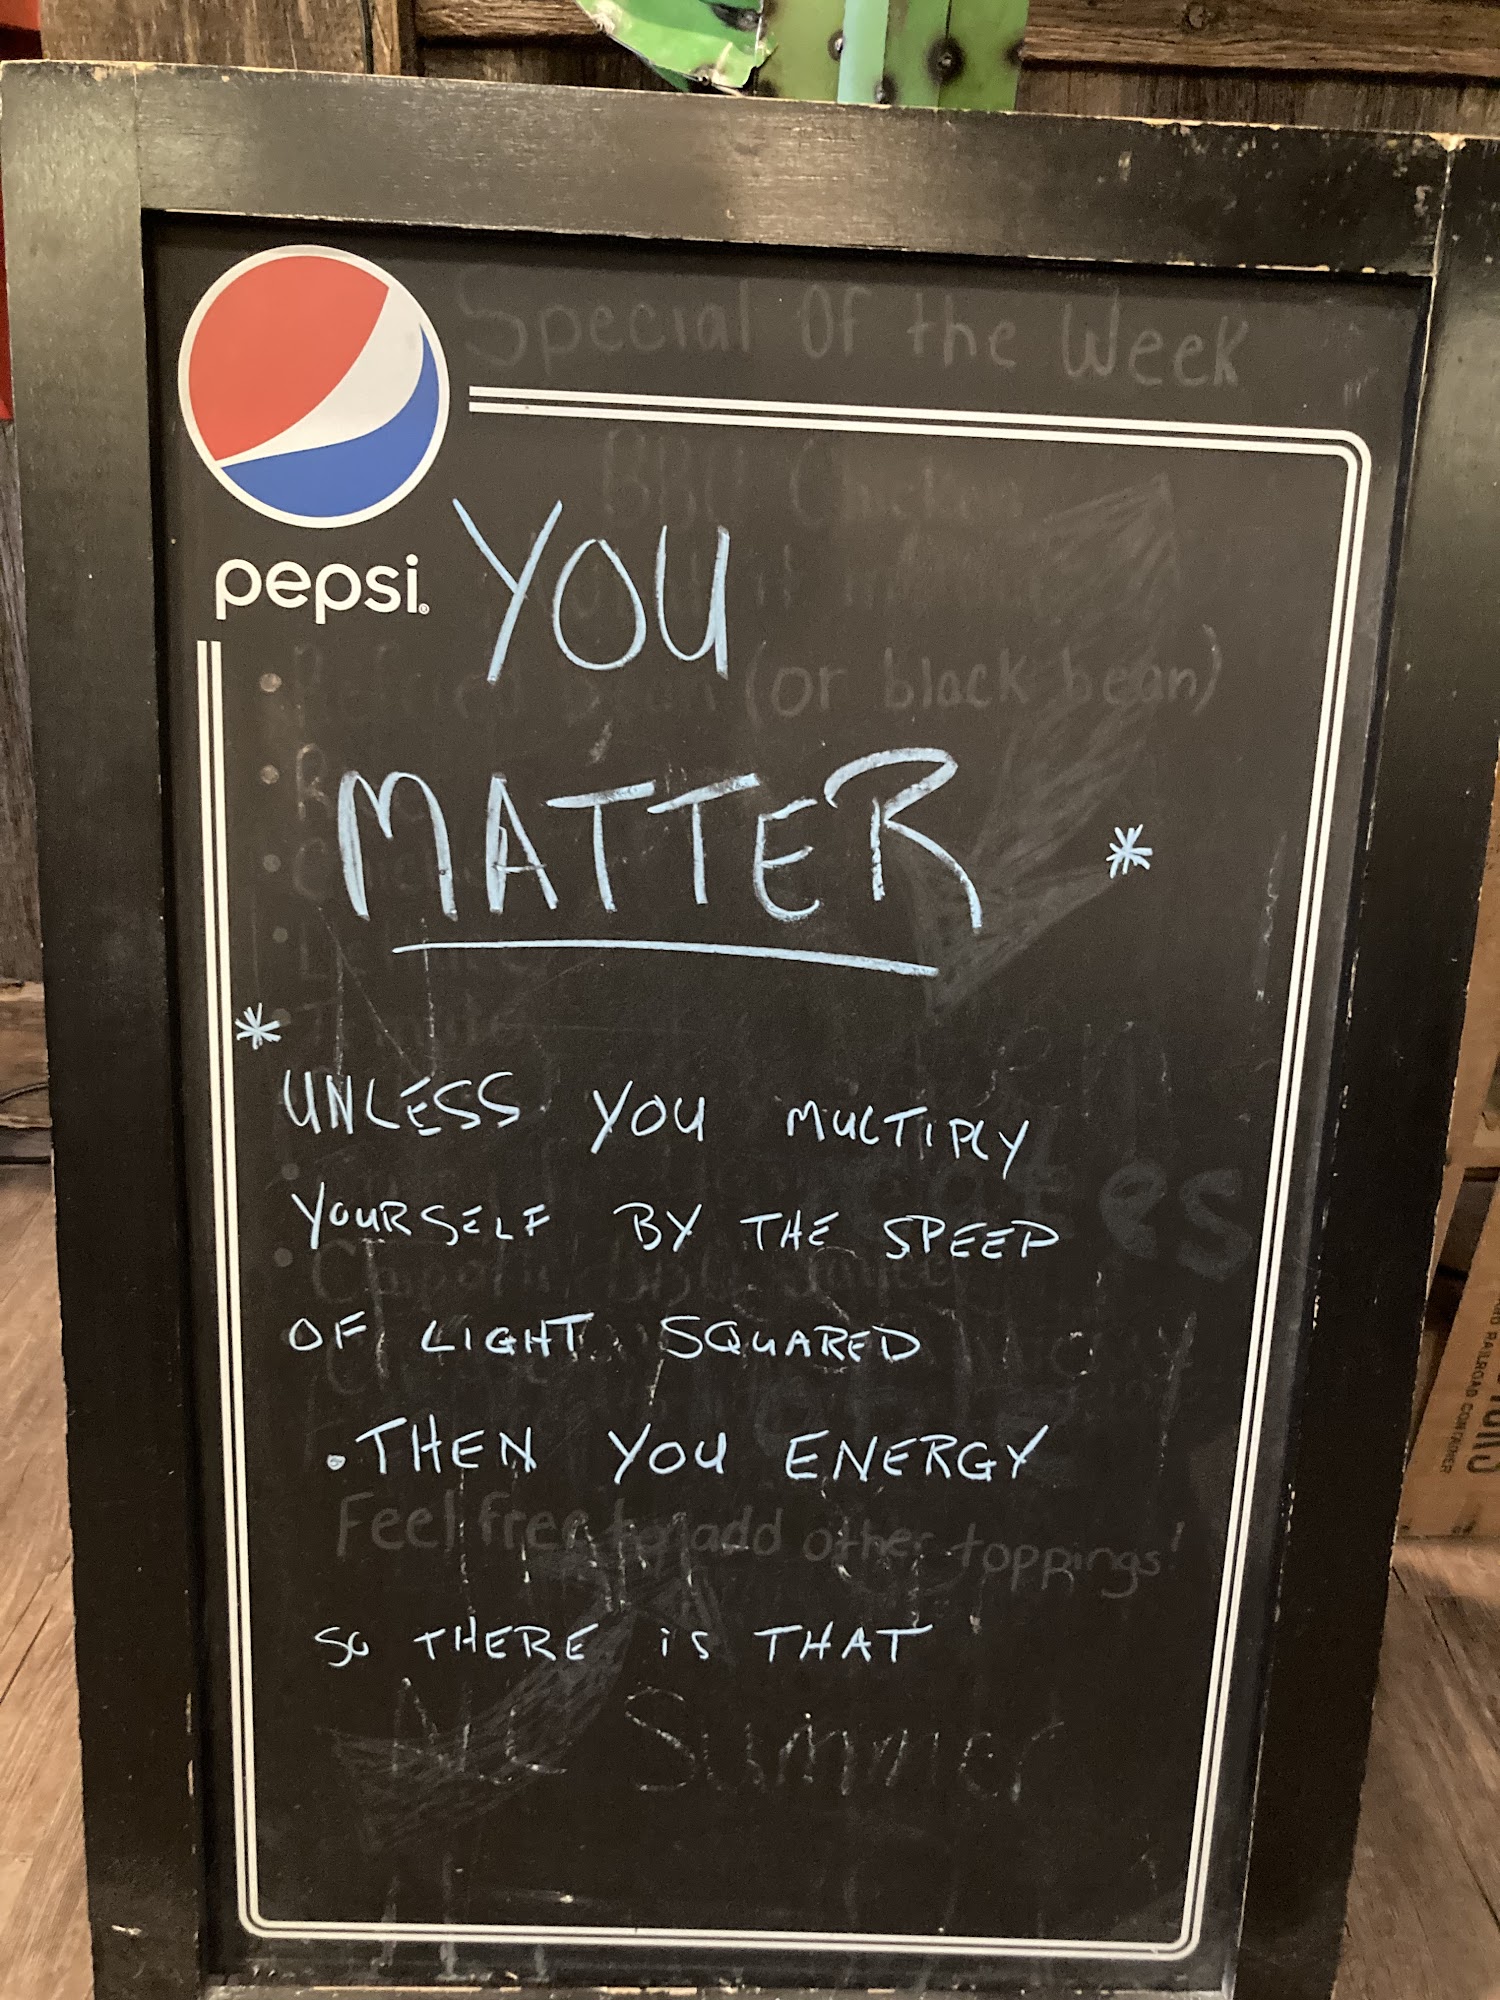 Special Of the Week
BBQ Chicken
pepsi®
YOU
(or black bean)
MATTER *
*
UNLESS YOU MULTIPLY
YOURSELF BY THE SPEED
OF LIGHT SQUARED
• THEN YOU ENERGY
Feel free to add other toppings!
SO THERE iS THAT
ALL Summer
RAILROAD CONTAINER